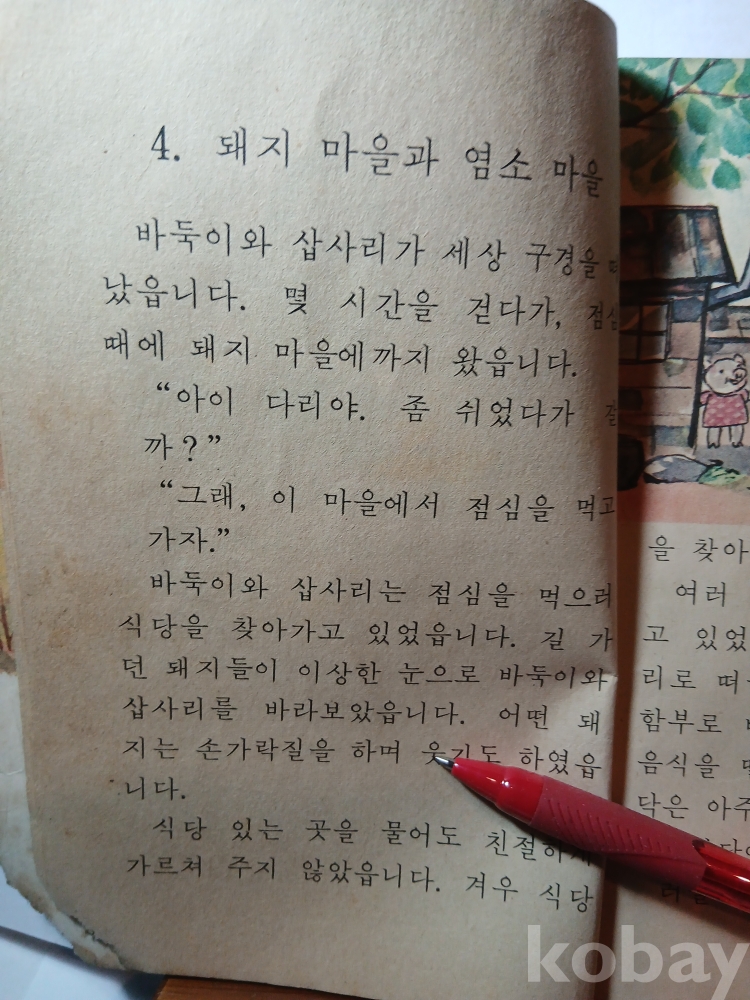 4. 돼지 마을과 염소 마을
바둑이와 삽사리가 세상 구경을
났읍니다. 몇 시간을 걷다가, 점심
때에 돼지 마을에까지 왔읍니다.
“아이 다리야. 좀 쉬었다가 갈
까?”
“그래, 이 마을에서 점심을 먹고
가자.”
바둑이와 삽사리는 점심을 먹으러
식당을 찾아가고 있었읍니다. 길 가
던 돼지들이 이상한 눈으로 바둑이와
삽사리를 바라보았읍니다. 어떤 돼
지는 손가락질을 하며 웃기도 하였읍
니다.
식당 있는 곳을 물어도 친절하게
가르쳐 주지 않았읍니다. 겨우 식당
을 찾아
여러
고 있었
리로
함부로
음식을
닭은 아주
kobay